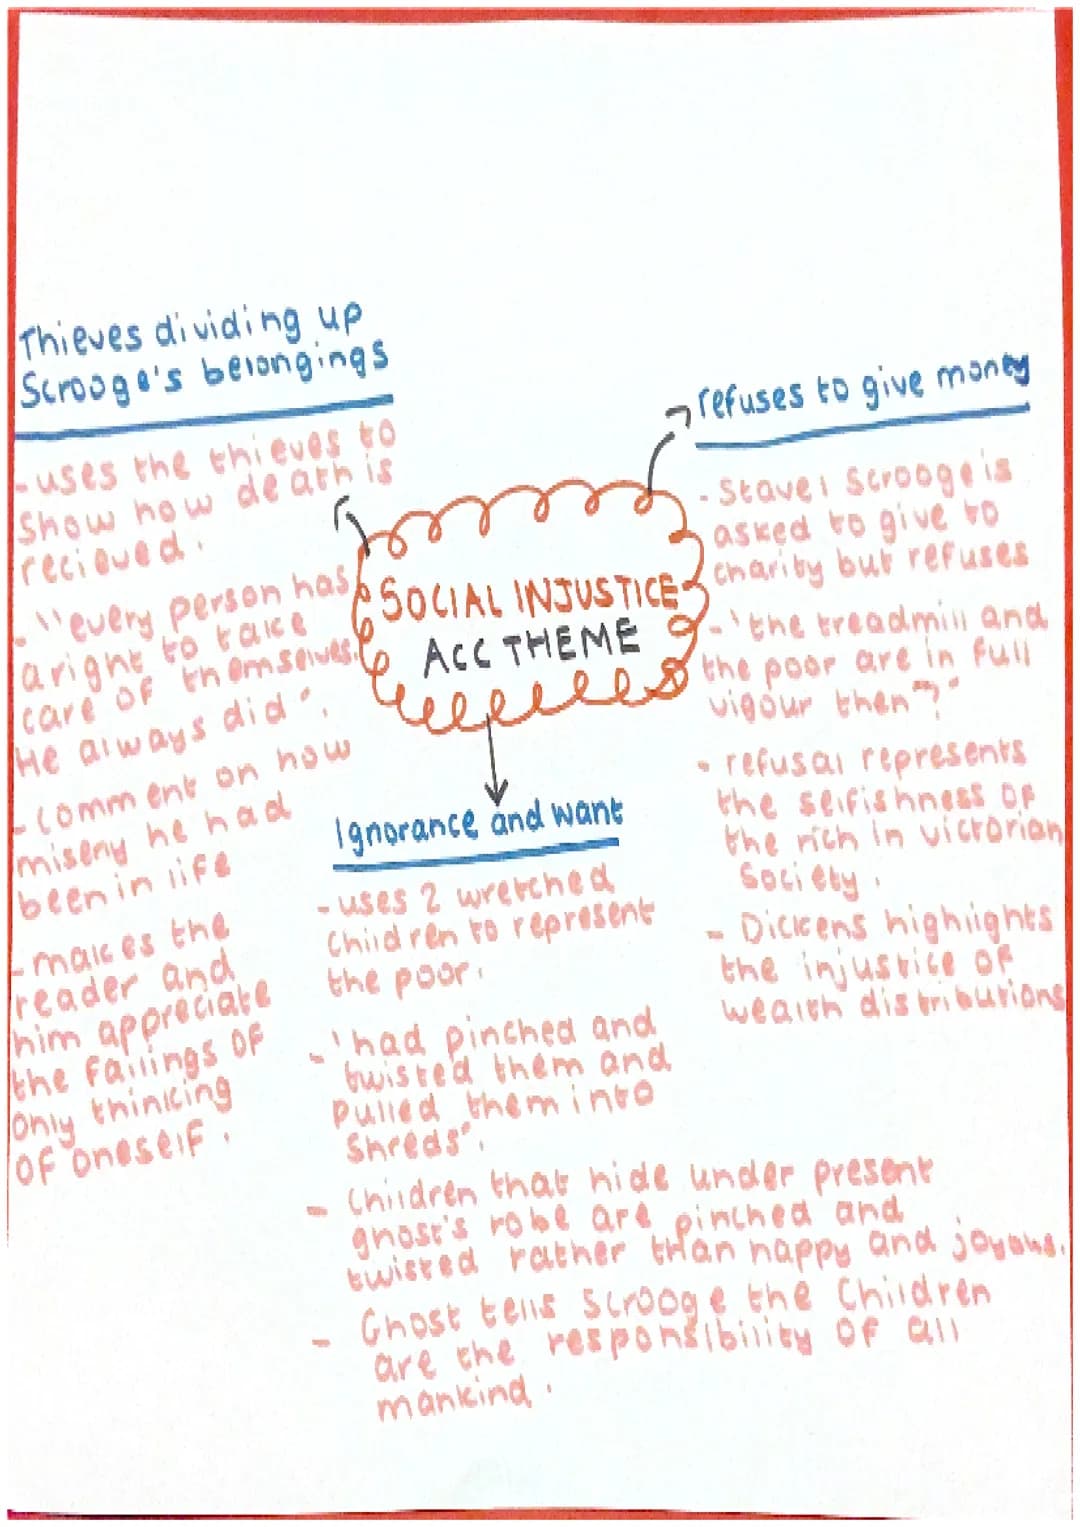 Thieves dividing up
Scrooge's belongings
- uses the thieves to
show how death is
recieved.
- "every person has
a right to take
care of themselves.
He always did".
- comment on how
misery he had
been in life
- makes the
reader and
him appreciate
the failings of
only thinking
of oneself.
SOCIAL INJUSTICE
ACC THEME
refuses to give money
- Stave 1 Scrooge is
asked to give to
charity but refuses
- 'the treadmill and
the poor are in full
vigour then"?"
- refusal represents
the selfishness of
the rich in victorian
Society.
- Dickens highlights
the injustice of
wealth distributions
Ignorance and want
- uses 2 wretched
children to represent
the poor.
- 'had pinched and
twisted them and
pulled them into
shreds".
- Children that hide under present
ghost's robe are pinched and
twisted rather than happy and joyous.
- Ghost tells Scrooge the Children
are the responsibility of all
mankind.